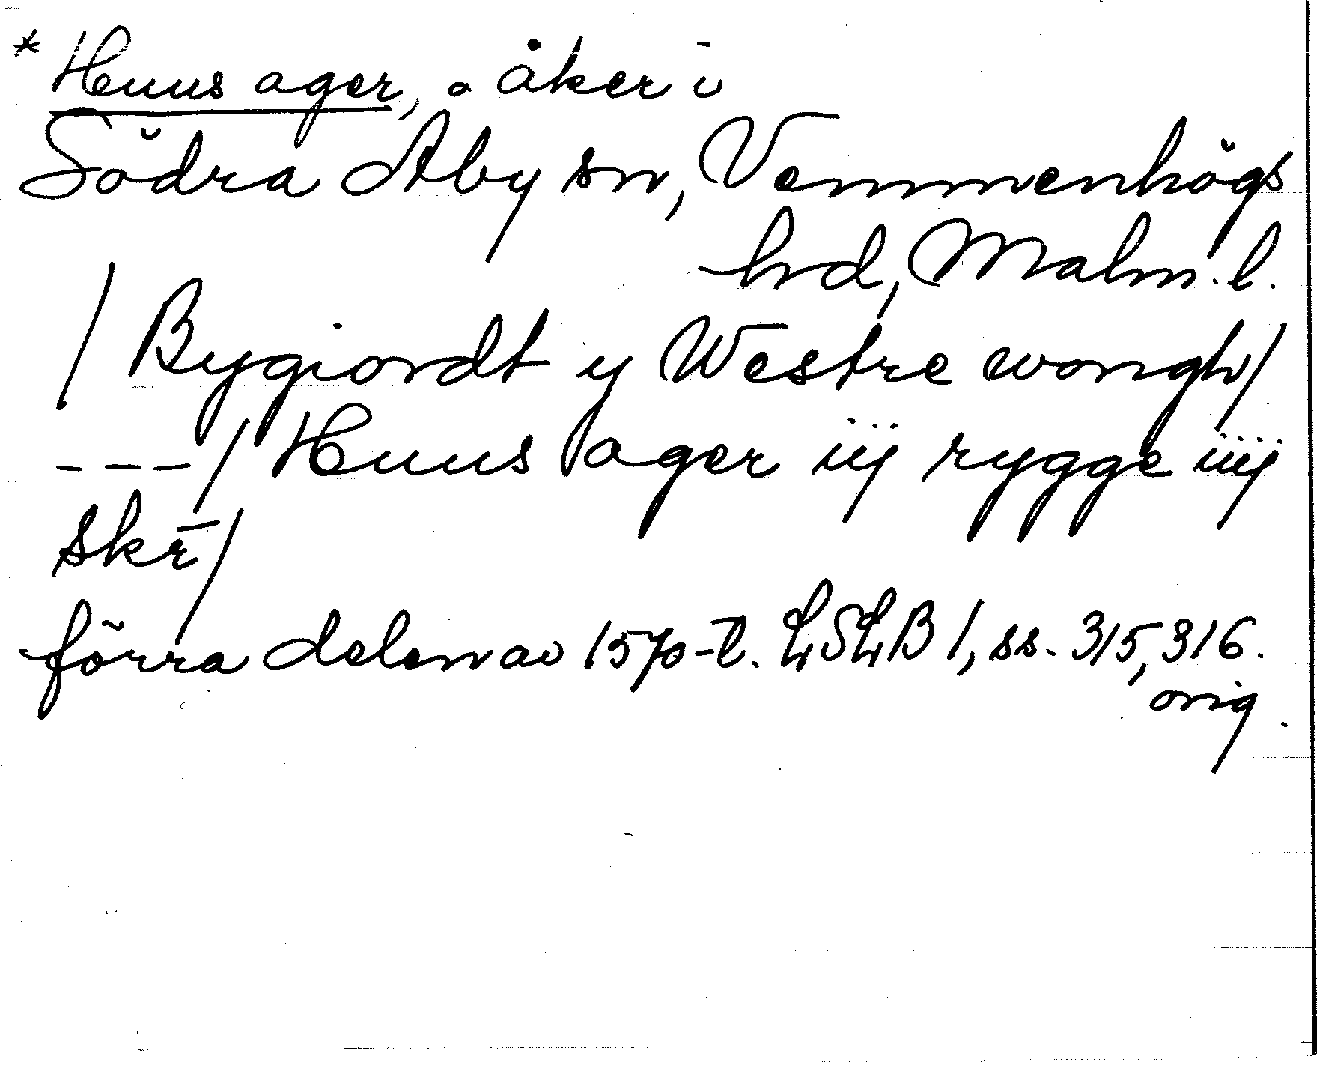 * Huus ager, o åker i
Södra Åby sn, Vemmenhögs
hrd, Malm. l.
/ Bygiordt y Westre wongh/
---/ Huus ager iij rygge iiij
skr̄/
förra delen av 1570-t. LSLB 1, ss. 315, 316.
orig.